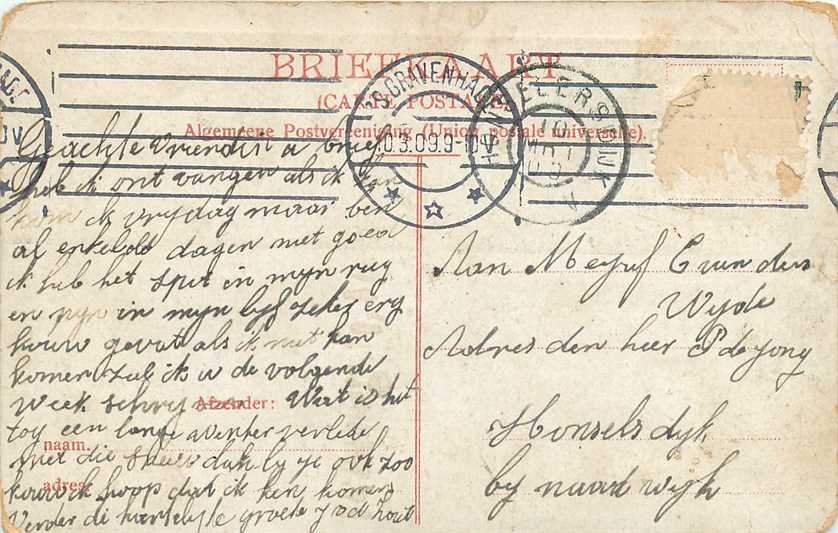 BRIEFKAART
(CARTE POSTALE)
Algemeene Postvereeniging (Union postale universelle).
'S-GRAVENHAGE
10.3.09.9-10V
HONSELERSDIJK
10
MRT
09
A
Geachte Vriendin u brief
heb ik ont vangen als ik kan
kom ik vrydag maar ben
al enkelde dagen niet goed
ik heb het spit in myn rug
en pyn in myn lyf zeker erg
kouw gevat als ik niet kan
komen zal ik u de volgende
week schryven Wat is het
Afzender:
tog een lange winter verlede
naam.
met die sneeuw ook zoo
adres.
kouw ik hoop dat ik ken komen
Verder de hartelyke groete
Aan Mejuf C van der
Wyde
Adres den heer P de Jong
Honselsdyk
by naardwyk